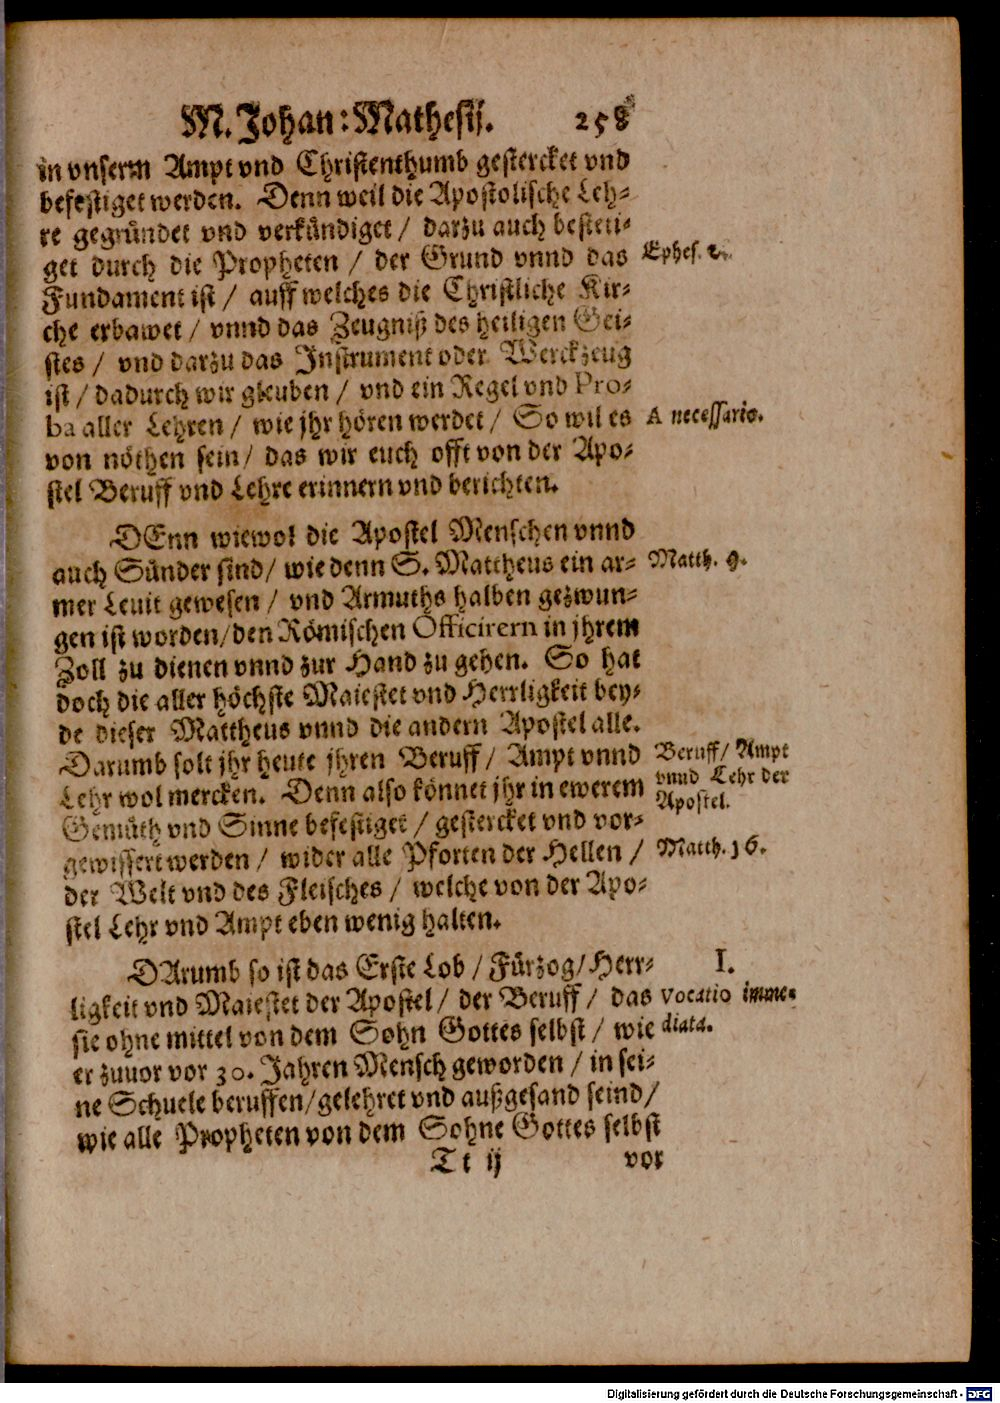 M. Johan: Mathesij. 258
in vnserm Ampt vnd Christenthumb gestercket vnd
befestiget werden. Denn weil die Apostolische Leh-
re gegründet vnd verkündiget / darzu auch besteti-
get durch die Propheten / der Grund vnnd das
Ephes. 2.
Fundament ist / auff welches die Christliche Kir-
che erbawet / vnnd das Zeugniß des heiligen Gei-
stes / vnd darzu das Instrument oder Werckzeug
ist / dadurch wir gleuben / vnd ein Regel vnd Pro-
ba aller Lehren / wie jhr hören werdet / So wil es
A necessario.
von nöthen sein / das wir euch offt von der Apo-
stel Beruff vnd Lehre erinnern vnd berichten.
DEnn wiewol die Apostel Menschen vnnd
auch Sünder sind / wie denn S. Mattheus ein ar-
Matth. 9.
mer Leuit gewesen / vnd Armuths halben gezwun-
gen ist worden / den Römischen Officirern in jhrem
Zoll zu dienen vnnd zur Hand zu gehen. So hat
doch die aller höchste Maiestet vnd Herrligkeit bey-
de dieser Mattheus vnnd die andern Apostel alle.
Darumb solt jhr heute jhren Beruff / Ampt vnnd
Beruff / Ampt
Lehr wol mercken. Denn also könnet jhr in ewerem
vnnd Lehr der
Apostel.
Gemüth vnd Sinne befestiget / gestercket vnd vor-
gewissert werden / wider alle Pforten der Hellen /
Matth. 16.
der Welt vnd des Fleisches / welche von der Apo-
stel Lehr vnd Ampt eben wenig halten.
DArumb so ist das Erste Lob / Fürzog / Herr-
I.
ligkeit vnd Maiestet der Apostel / der Beruff / das
vocatio imme-
sie ohne mittel von dem Sohn Gottes selbst / wie
diata.
er zuuor vor 30. Jahren Mensch geworden / in sei-
ne Schuele beruffen / gelehret vnd außgesand seind /
wie alle Propheten von dem Sohne Gottes selbst
Tt ij vor
Digitalisierung gefördert durch die Deutsche Forschungsgemeinschaft - DFG